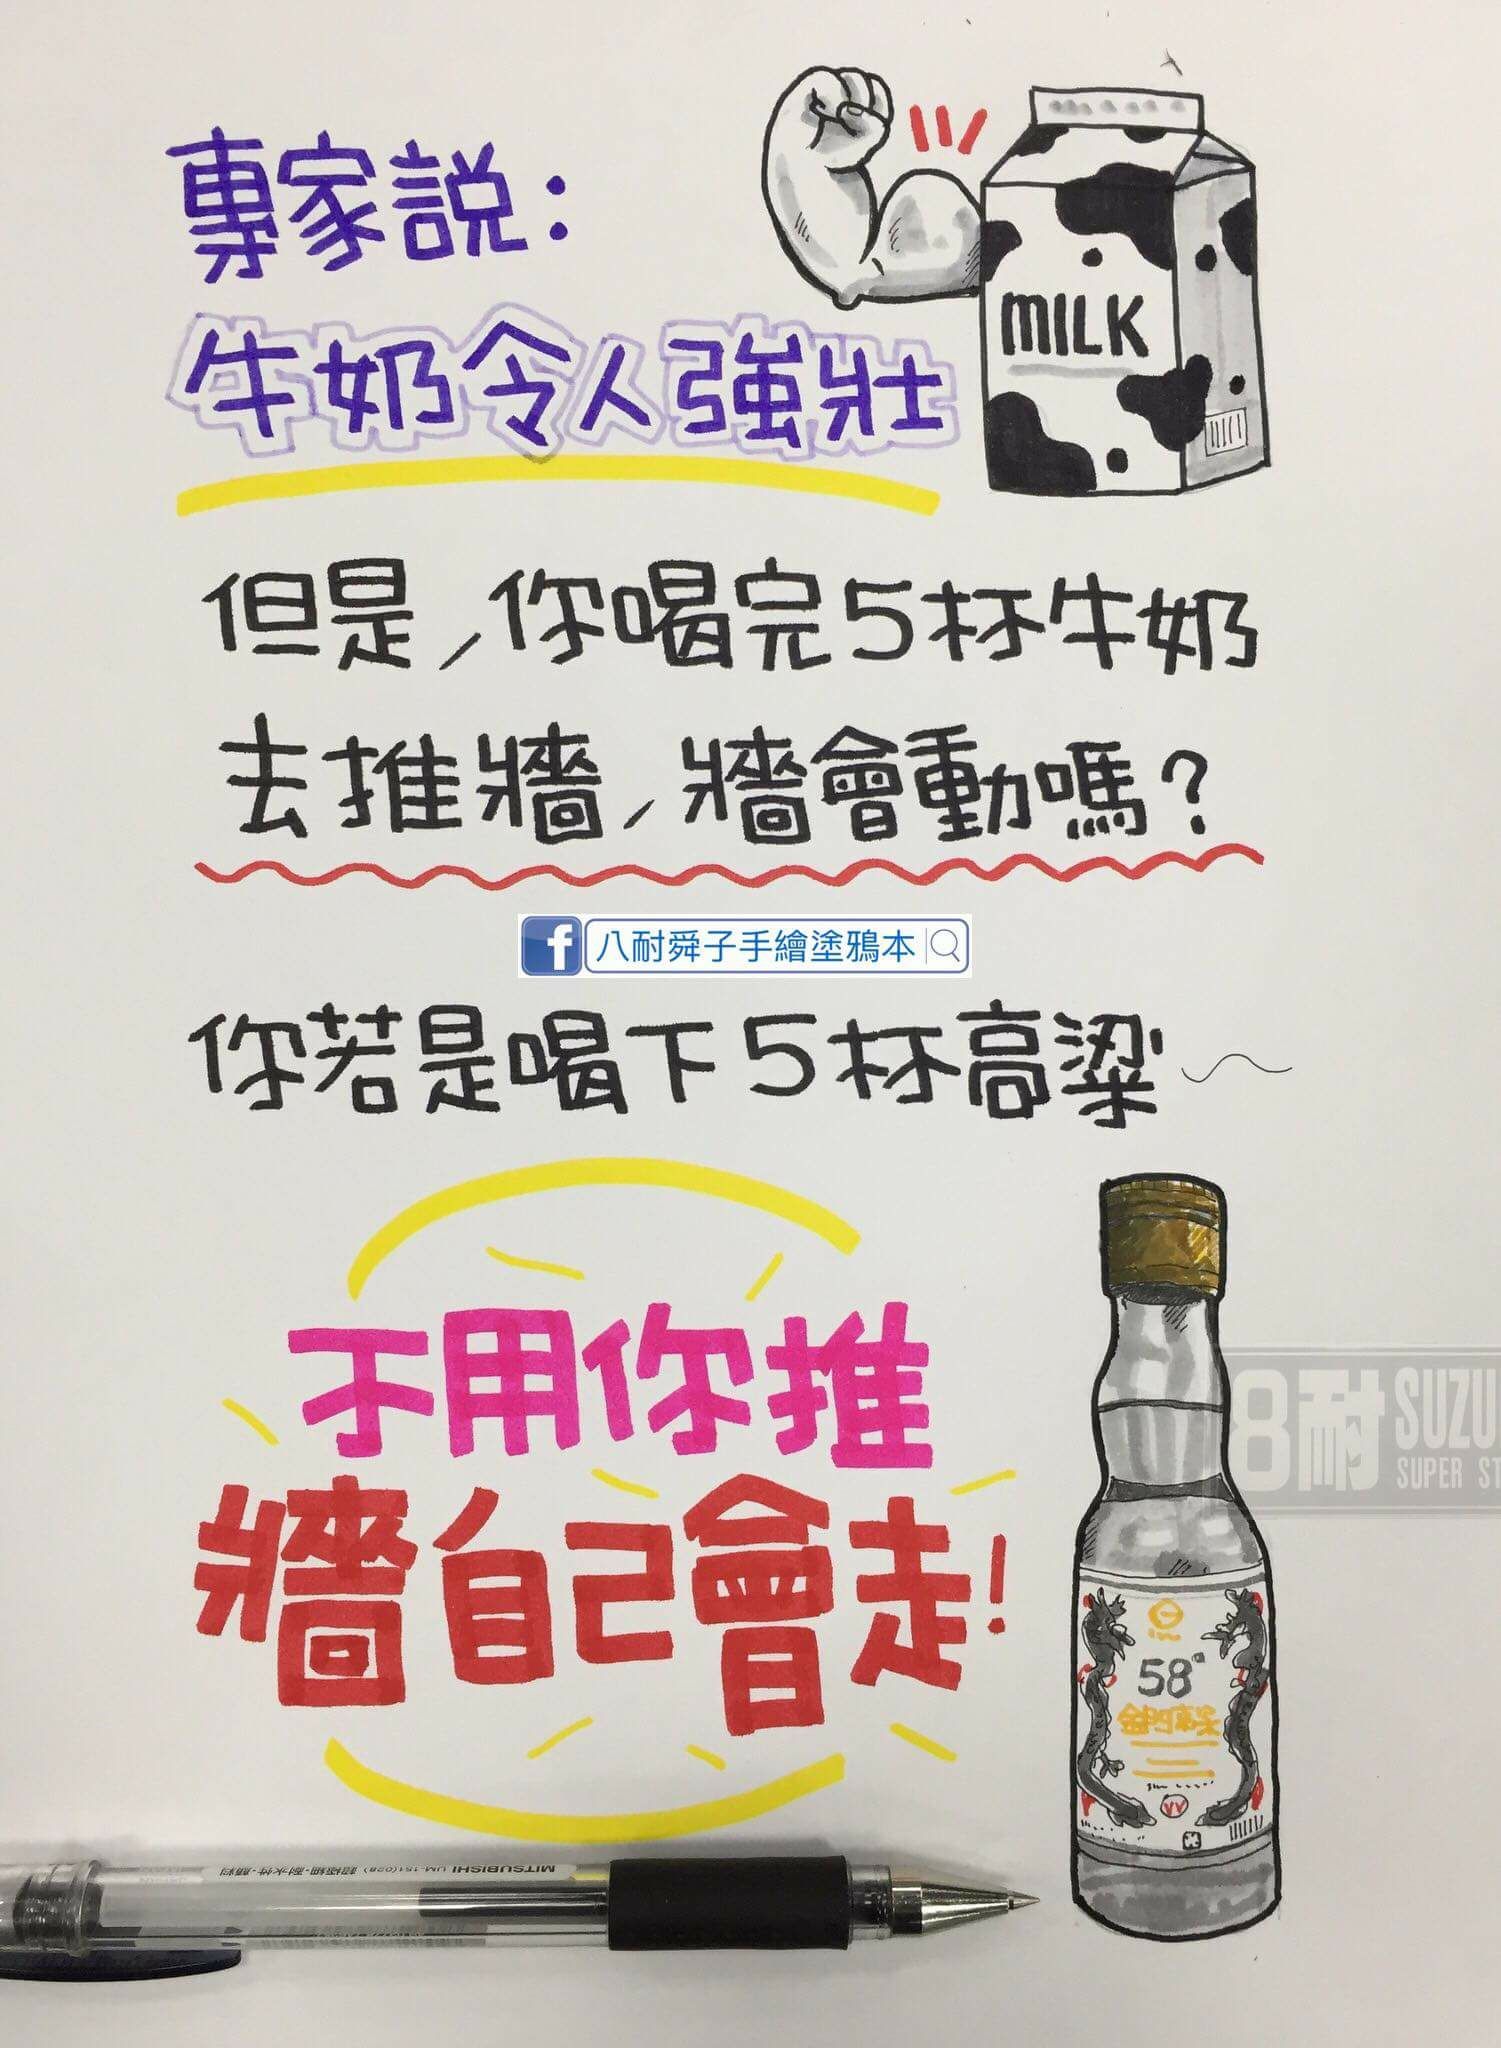 專家說：
牛奶令人強壯
MILK
但是，你喝完5杯牛奶
去推牆，牆會動嗎？
f 八耐舜子手繪塗鴉本
你若是喝下5杯高粱～
不用你推
牆自己會走！
8耐 SUZU
SUPER ST
58°
金門高粱
MITSUBISHI UM-151(028) 超極細·耐水性·顏料